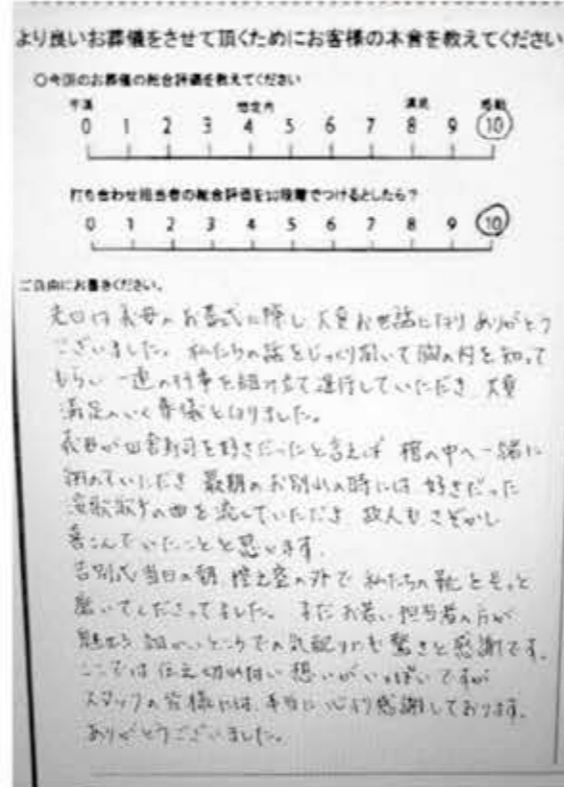 より良いお葬儀をさせて頂くためにお客様の本音を教えてください
○今回のお葬儀の総合評価を教えてください
不満 想定内 満足 感動
0 1 2 3 4 5 6 7 8 9 10
打ち合わせ担当者の総合評価を10段階でつけるとしたら?
0 1 2 3 4 5 6 7 8 9 10
ご自由にお書きください。
先日は義母のお葬式に際し 大変お世話になり ありがとう
ございました。私たちの話をじっくり聞いて胸の内を知って
もらい 一連の行事を組み立て進行していただき 大変
満足のいく葬儀となりました。
義母が田舎寿司を好きだったと言えば 棺の中へ一緒に
していただき 最期のお別れの時には 好きだった
演歌歌手の曲を流していただき 故人もさぞかし
喜こんでいたことと思います。
告別式当日の朝 控え室の外で 私たちの靴をそっと
磨いてくださってました。まだお若い担当者の方が
細かいところでの気配りにも驚きと感謝です。
ここでは伝え切れない想いがいっぱいですが
スタッフの皆様には、本当に心より感謝しております。
ありがとうございました。